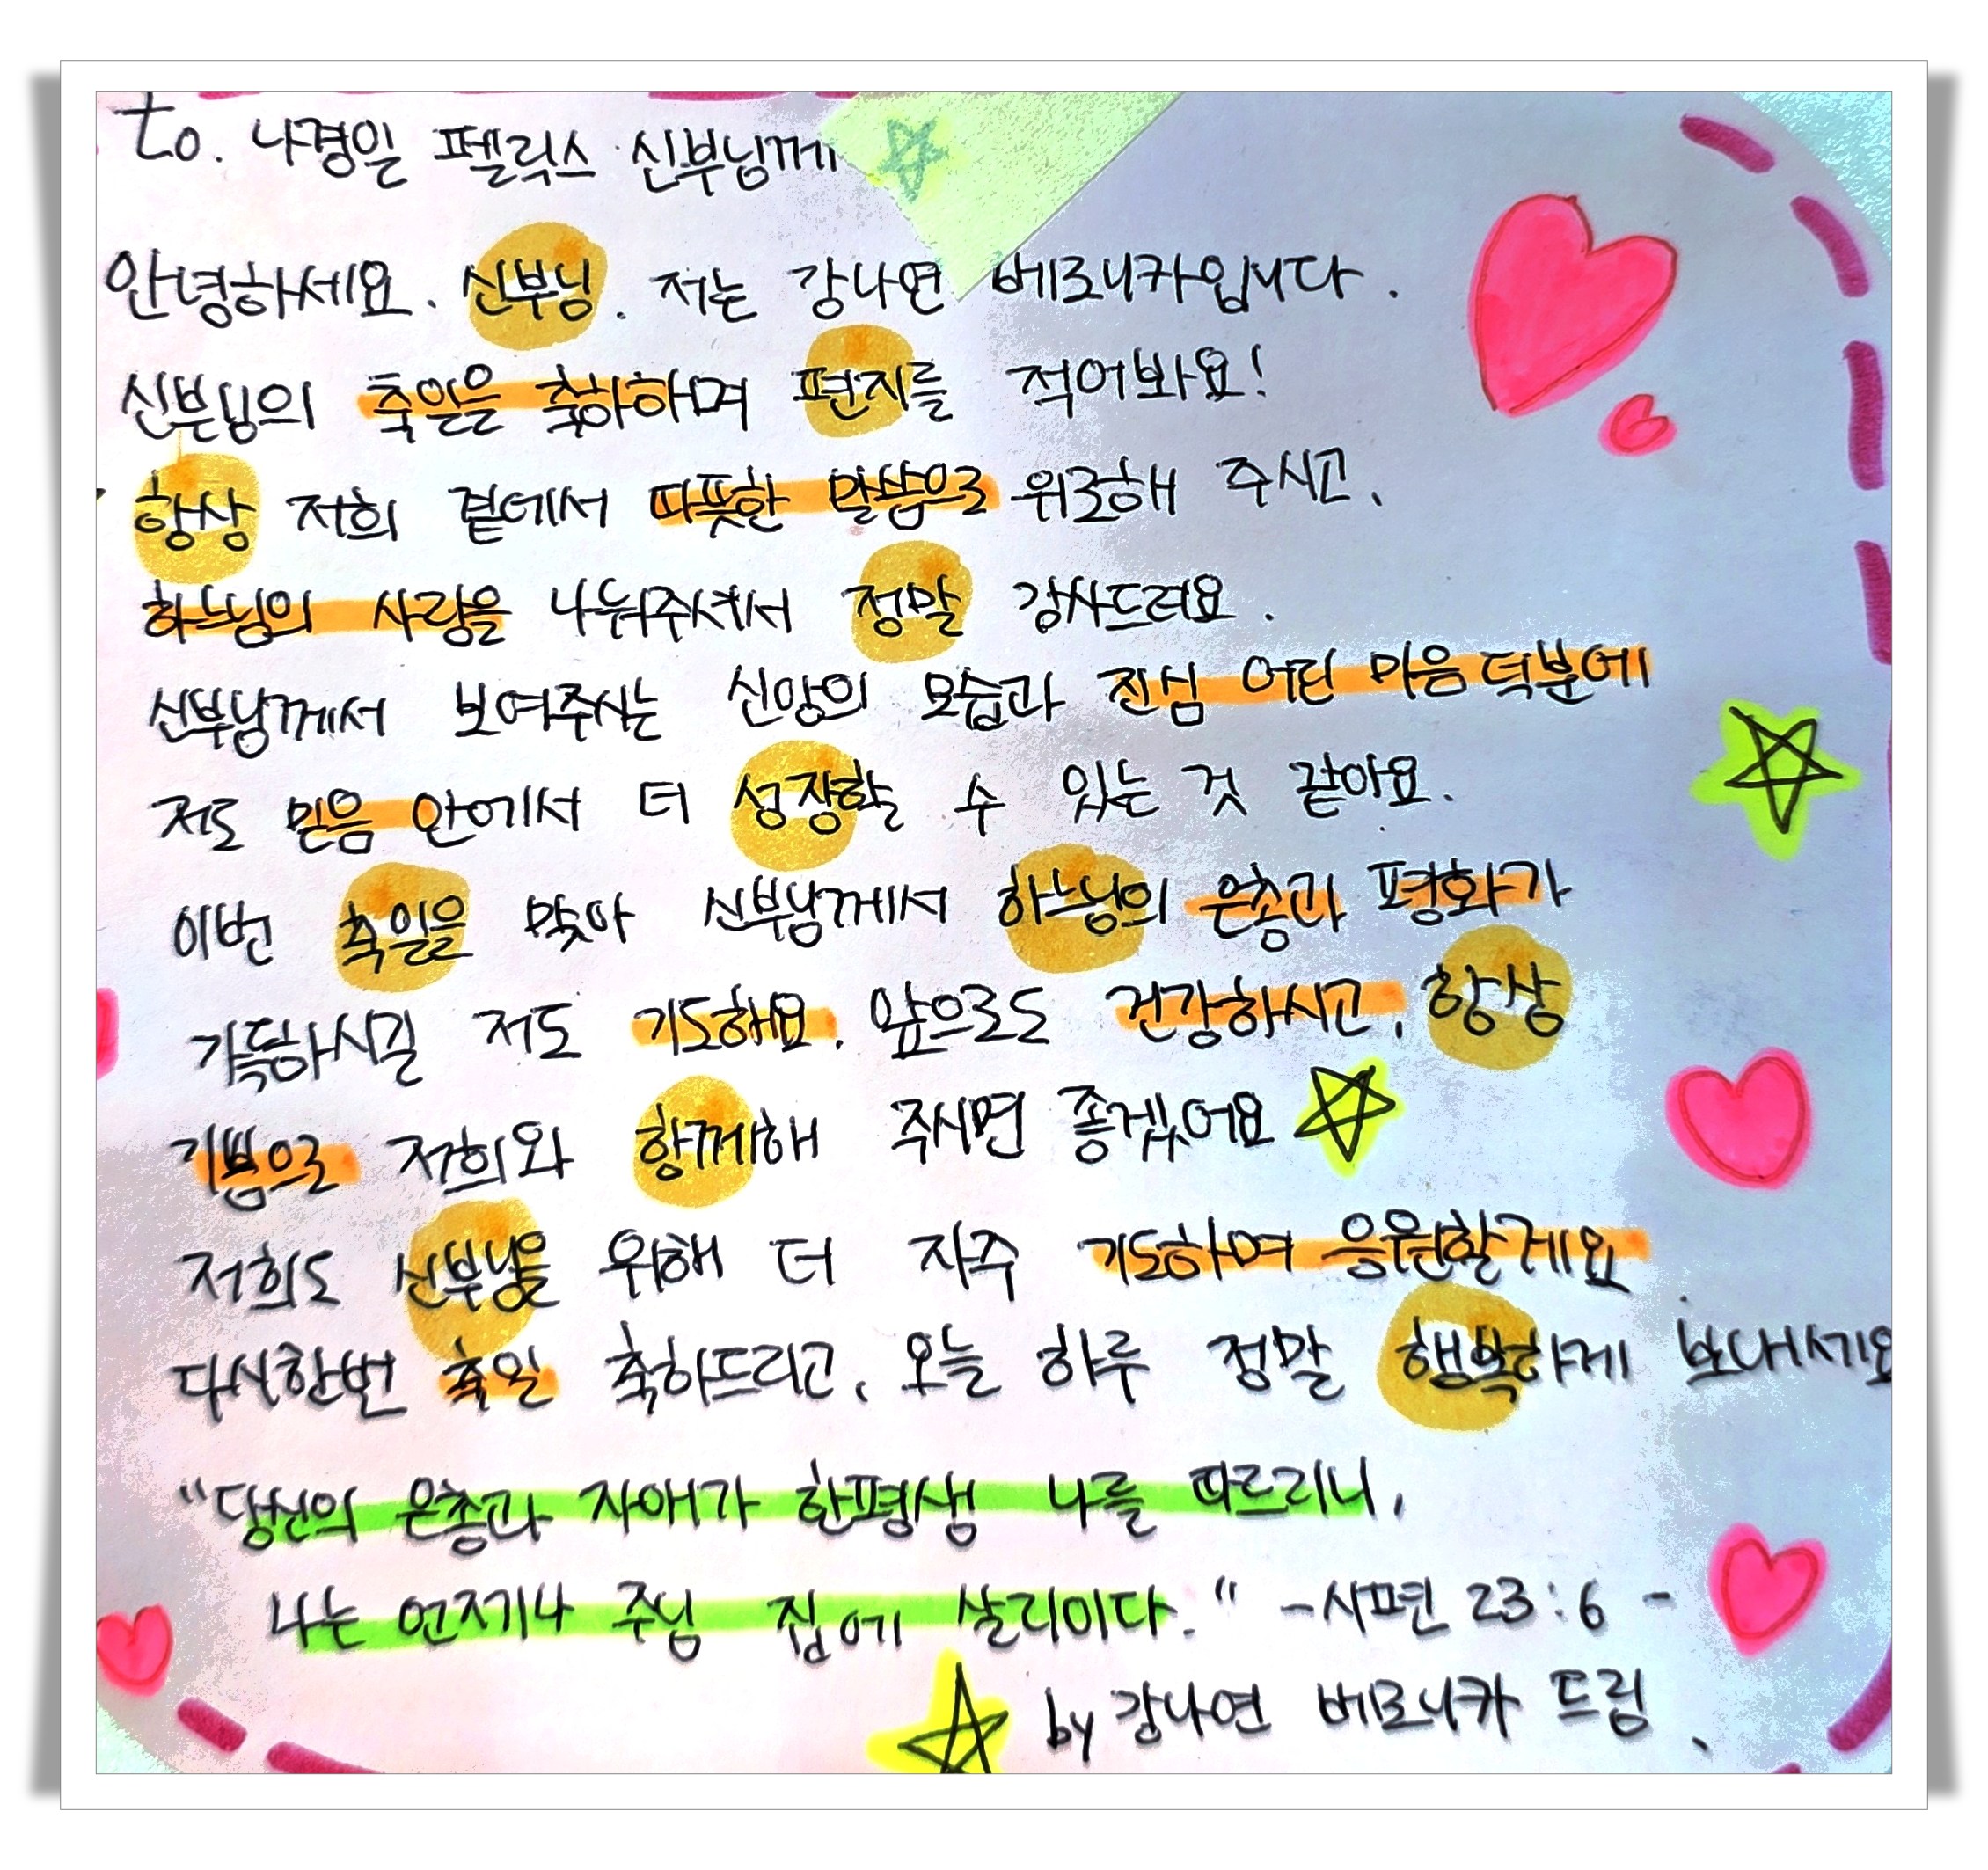 to. 나경일 펠릭스 신부님께
안녕하세요. 신부님. 저는 강나연 베로니카입니다.
신부님의 축일을 축하하며 편지를 적어봐요!
항상 저희 곁에서 따뜻한 말씀으로 위로해 주시고,
하느님의 사랑을 나눠주셔서 정말 감사드려요.
신부님께서 보여주시는 신앙의 모습과 진심 어린 마음 덕분에
저도 믿음 안에서 더 성장할 수 있는 것 같아요.
이번 축일을 맞아 신부님께서 하느님의 은총과 평화가
가득하시길 저도 기도해요. 앞으로도 건강하시고, 항상
기쁨으로 저희와 함께해 주시면 좋겠어요
저희도 신부님을 위해 더 자주 기도하며 응원할게요.
다시한번 축일 축하드리고, 오늘 하루 정말 행복하게 보내세요
"당신의 은총과 자애가 한평생 나를 따르리니,
나는 언제나 주님 집에 살리이다." -시편 23:6-
by 강나연 베로니카 드림.